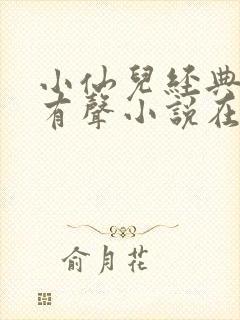 小仙兒經典
有聲小說在
俞月花